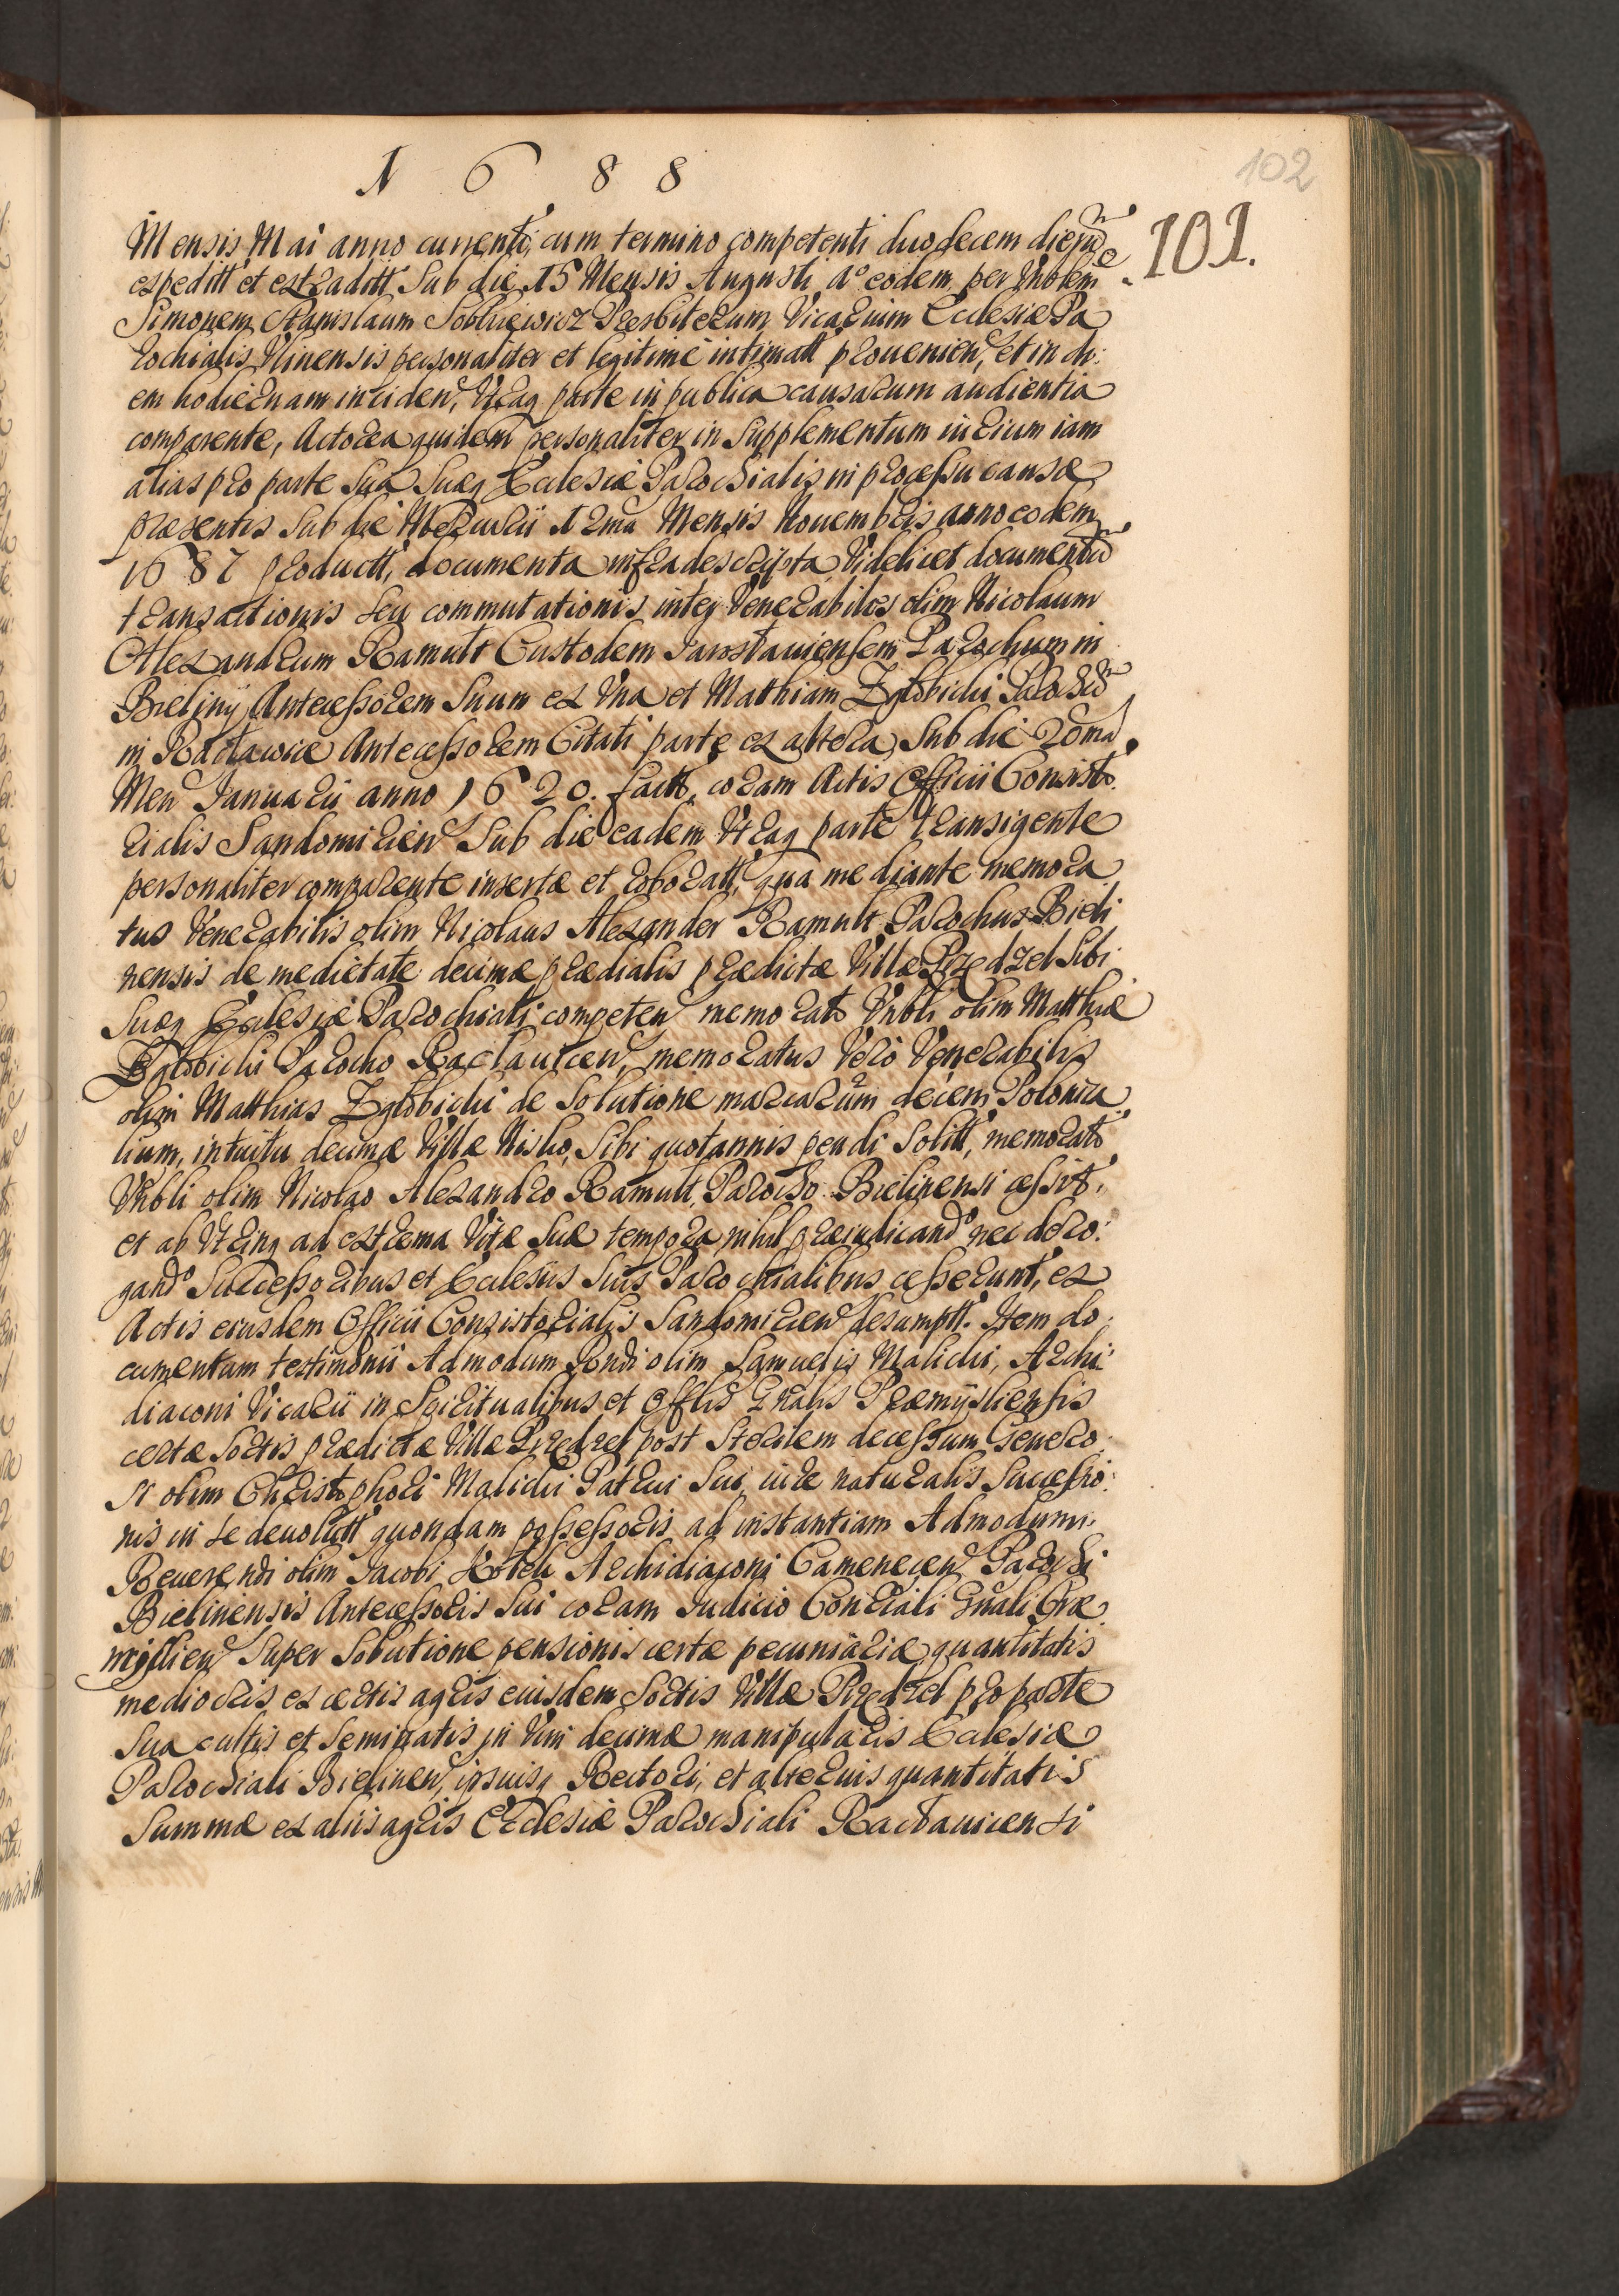 1 6 8 8
102
101.
Mensis Mai anno currenti, cum termino competenti duodecem dierũ
expeditt et extraditt Sub die 15 Mensis Augusti aº eodem per Vnblem
Simonem Stanislaum Sobkiewicz Presbiterum Vicarium Ecclesiæ Pa
rochialis Vlinensis personaliter et legitimè intimatt prouenien, et in di:
em hodiernam inciden, Vtraq parte in publica causarum audientia
comparente, Actorea quidem personaliter in Supplementum iurium iam
alias pro parte Sua Suæq Ecclesiæ Parochialis in processu causæ
præsentis Sub die Mercurii 12ma Mensis Nouembris anno eodem
1687 productt, documenta infradescripta Videlicet documentũ
transactionis Seu commutationis inter Venerabiles olim Nicolaum
Alexandrum Ramult Custodem Jarostauiensem Parochum in
Bieliny Antecessorem Suum ex Vna et Matthiam Zgłobicki Parochũ
in Racławice Antecessorem Citati parte ex altera, Sub die 20ma
Men Januarii anno 1620. factt, coram Actis Officii Consisto
rialis Sandomirien Sub die eadem Vtraq parte transigente
personaliter comparente insertæ et roboratt, qua mediante memora
tus Venerabilis olim Nicolaus Alexander Ramult Parochus Bieli
nensis de medietate decimæ prædialis prædictæ Villæ Przedzel Sibi
Suæq Ecclesiæ Parochiali competen memorato Vnbli olim Matthiæ
Zgłobicki Parocho Raclauicen, memoratus Verò Venerabilis
olim Matthias Zgłobicki de Solutione marcarum decem Polonica
lium, intuitu decimæ Villæ Nisko, Sibi quotannis pendi Solitt, memorato
Vnbli olim Nicolao Alexandro Ramult, Parocho Bielinensi cessit,
et ab Vtrinq ad extrema Vitæ Suæ tempora nihil præiudicandº nec dero:
gandº Successoribus et Ecclesiis Suis Parochialibus cesserunt, ex
Actis eiusdem Officii Consistorialis Sandomirien desumptt. Item do:
cumentum testimonii Admodum Rndi olim Samuelis Malicki, Archi
diaconi Vicarii in Spiritualibus et Offlis Gnalis Præmysliensis
certæ Sortis prædictæ Villæ Przedzel post Sterilem decessum Genero
si olim Christophori Malicki Patrui Sui, iure naturalis Successio:
nis in se deuolutt quondam possessoris ad instantiam Admodum
Reuerendi olim Jacobi Kotek Archidiaconi Camenecen Parochi
Bielinensis Antecessoris Sui coram Judicio Conriali Gnali Præ
myslien Super Solutione pensionis certæ pecuniariæ quantitatis
mediocris ex certis agris eiusdem Sortis Villæ Przedzel pro parte
Sua cultis et Seminatis in Vim decimæ manipularis Ecclesiæ
Parochiali Bielinen, ipsiusq Rectori, et alterius quantitatis
Summæ ex aliis agris Ecclesiæ Parochiali Racłauicensi